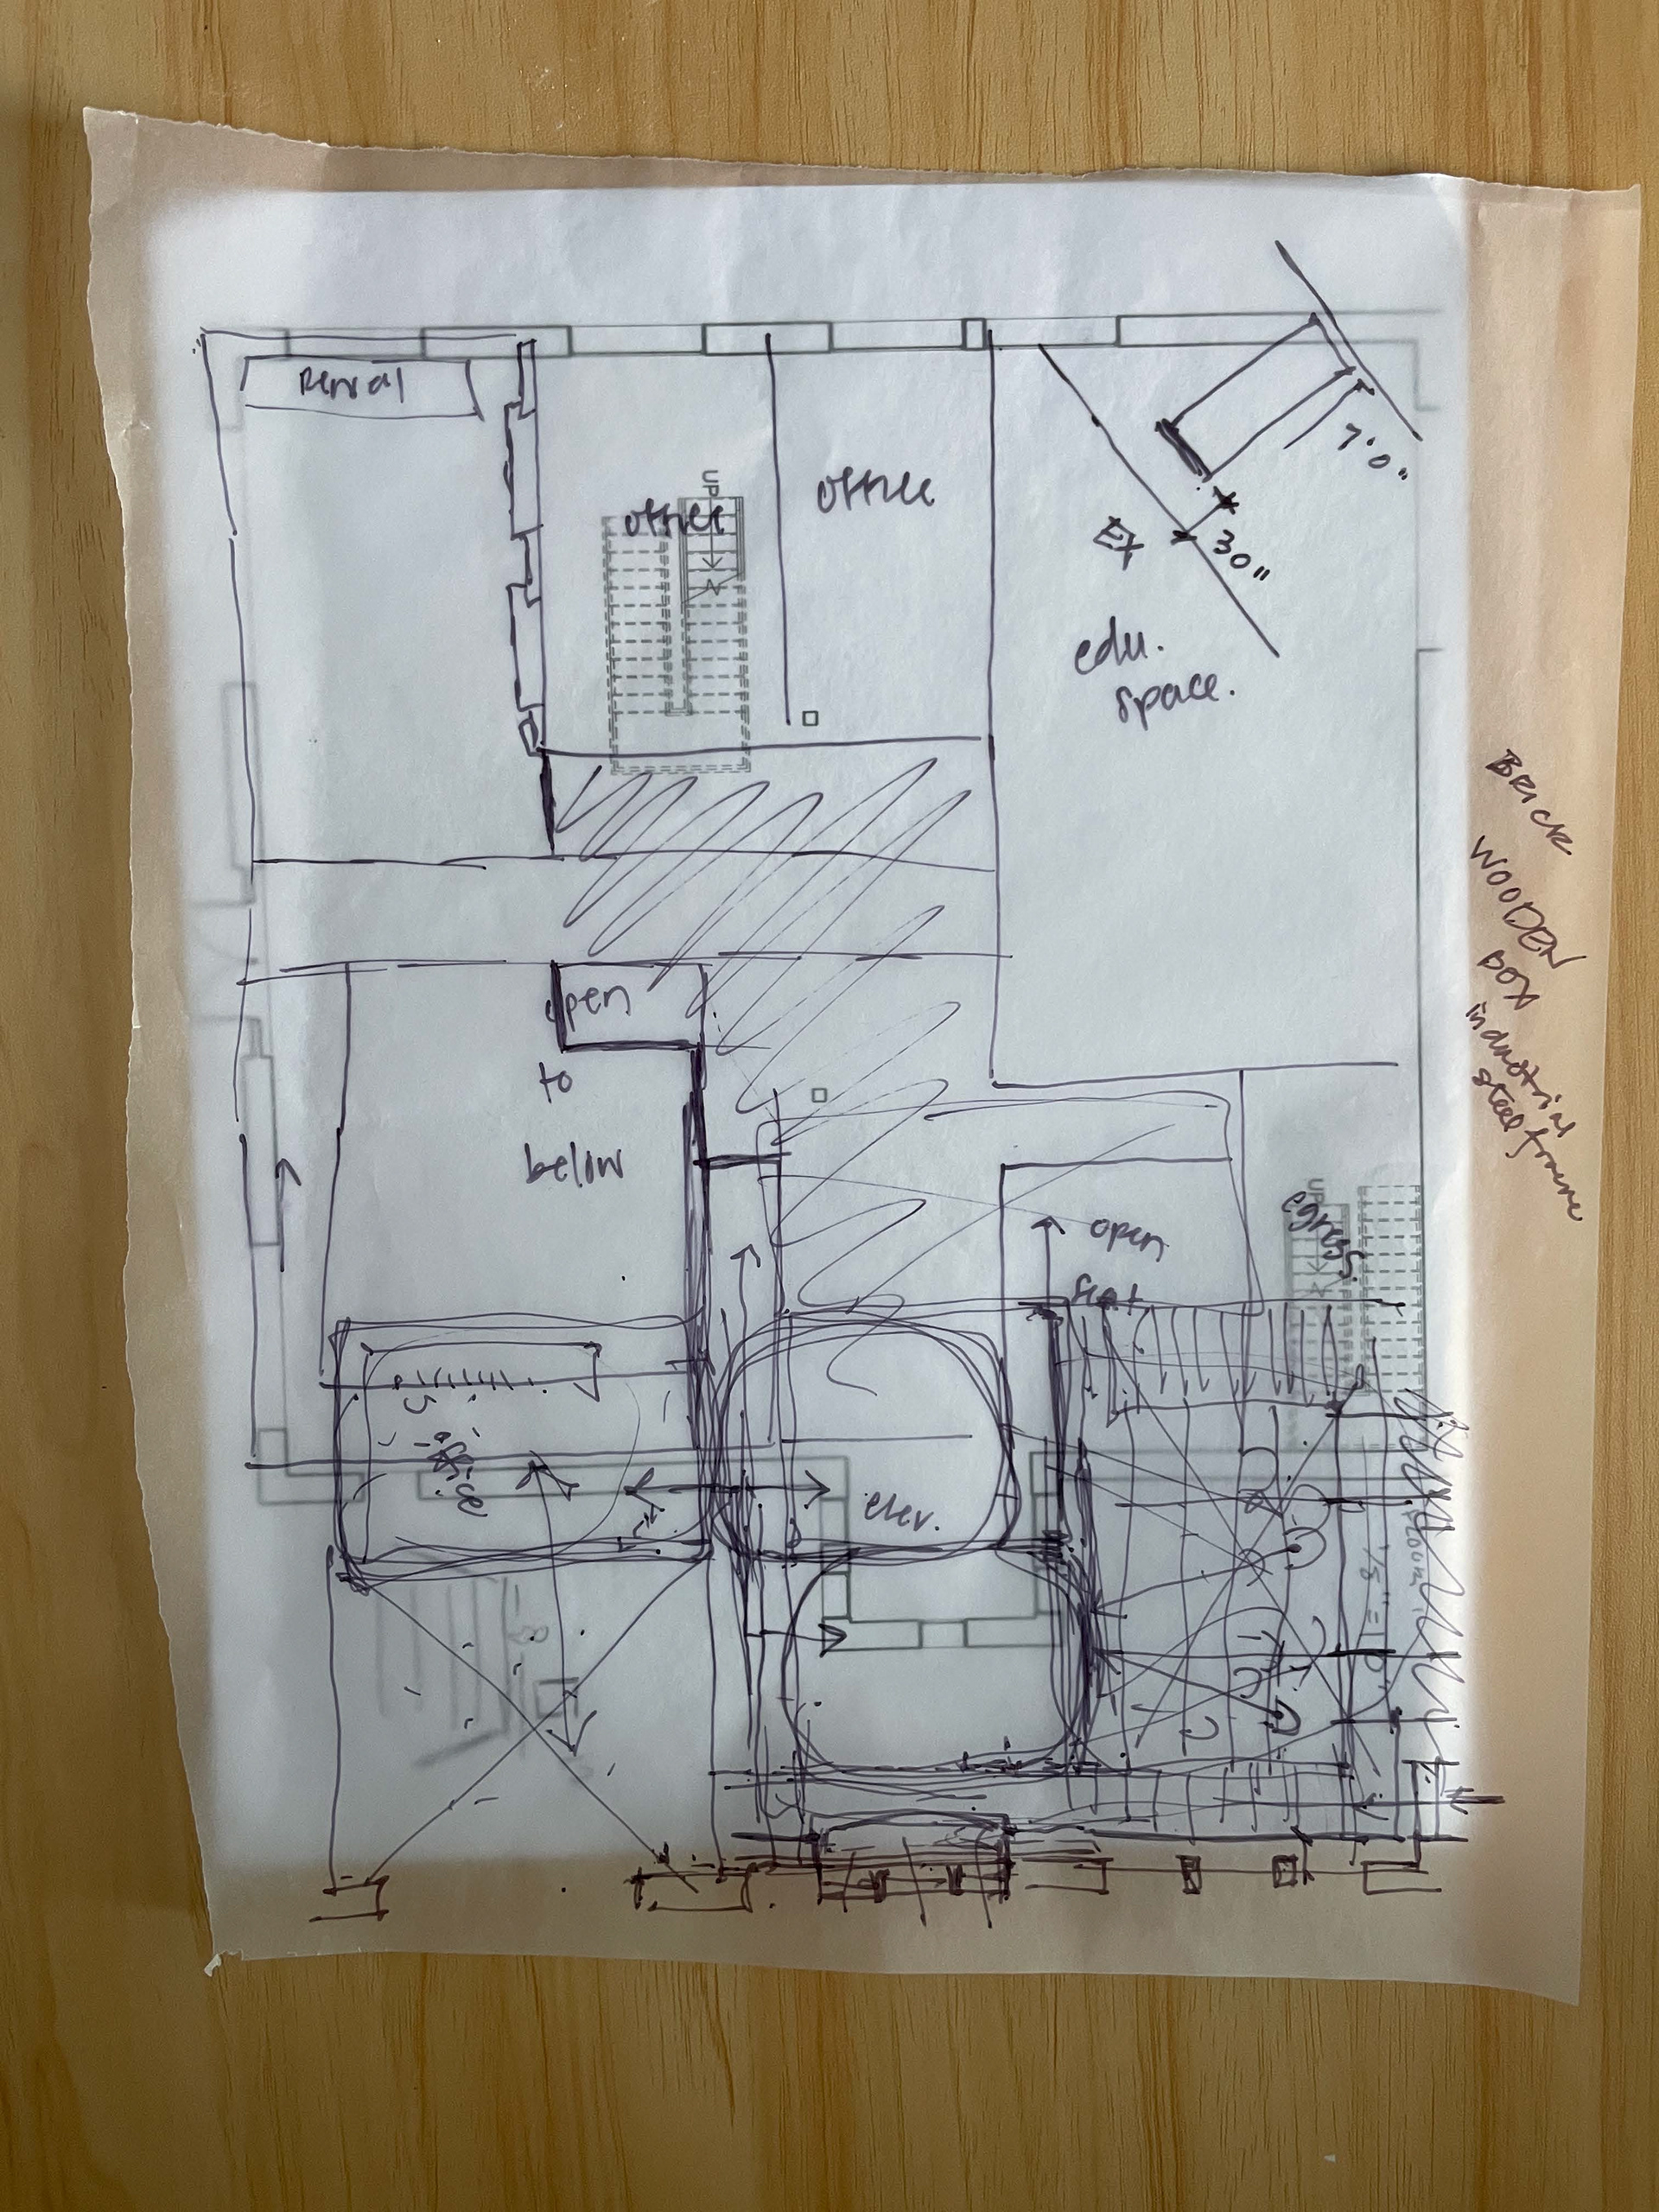 Rental
UP
office
office
7'0"
30"
EX
edu.
space.
open
to
below
open
UP
egress.
office
elev.
BRICK
WOODEN
BOX
industrial
steel frame